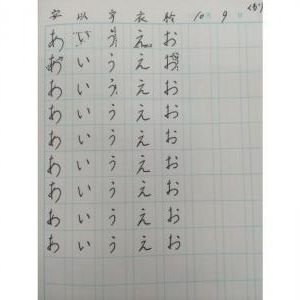 安 以 宇 衣 於 10 9
あ い う え お
あ い う え お
あ い う え お
あ い う え お
あ い う え お
あ い う え お
あ い う え お
あ い う え お
あ い う え お